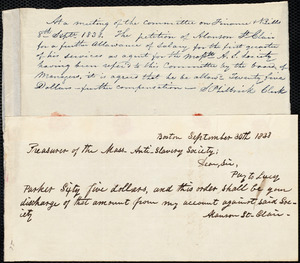 At a meeting of the Committee on Finance & Bills
8th Septr. 1838. The petition of Alanson St. Clair
for a further Allowance of Salary for the first quarter
of his services as agent for the Masstts. A. S. Society
having been refer'd to this Committee by the Board of
Managers, it is agreed that he be allowed Twenty five
Dollars further compensation — S. Philbrick Clerk
Boston September 30th 1838
Treasurer of the Mass. Anti-Slavery Society;
Dear Sir,
Pay to Lucy
Parker Sixty five dollars, and this order shall be your
discharge of that amount from my account against said Soc-
iety
Alanson St. Clair.